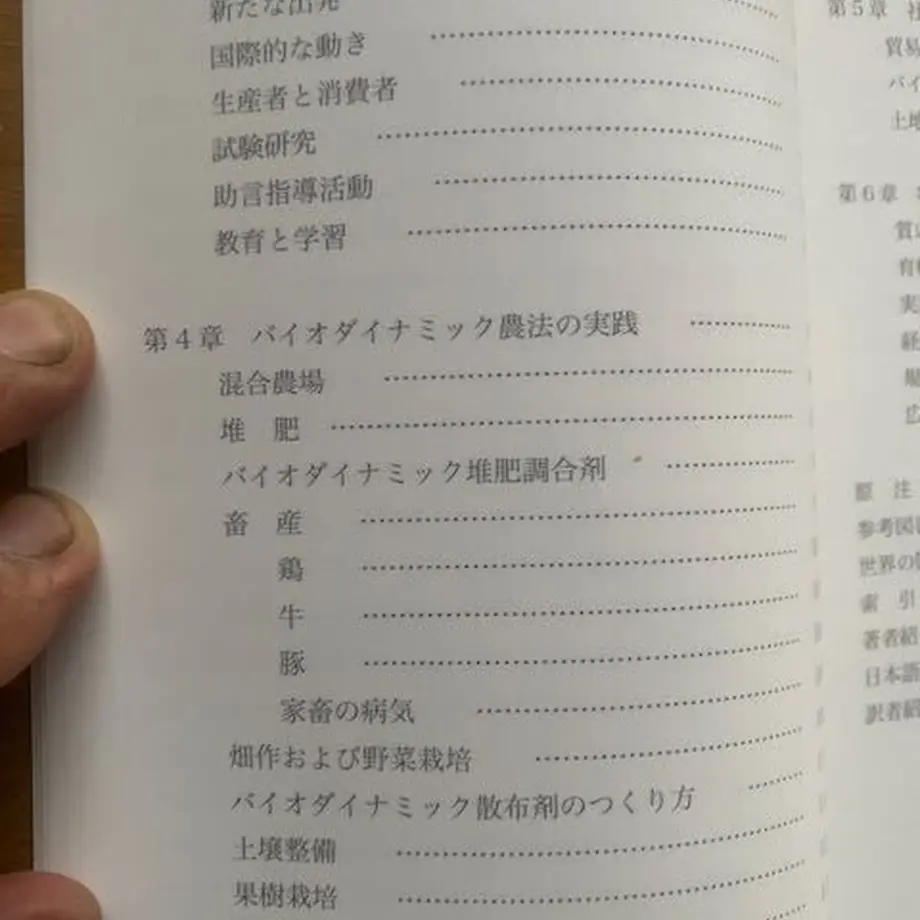 新たな出発
国際的な動き
生産者と消費者
試験研究
助言指導活動
教育と学習
第4章 バイオダイナミック農法の実践
混合農場
堆 肥
バイオダイナミック堆肥調合剤
畜 産
鶏
牛
豚
家畜の病気
畑作および野菜栽培
バイオダイナミック散布剤のつくり方
土壌整備
果樹栽培
第5章
貿易
バイ
土地
第6章
質
育
実
経
広
原 注
参考図
世界の
索 引
著者紹
日本語
訳者紹